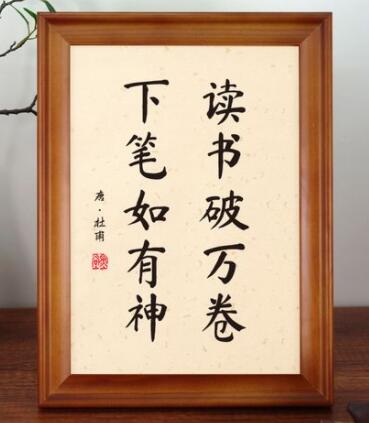 读书破万卷
下笔如有神
唐·杜甫